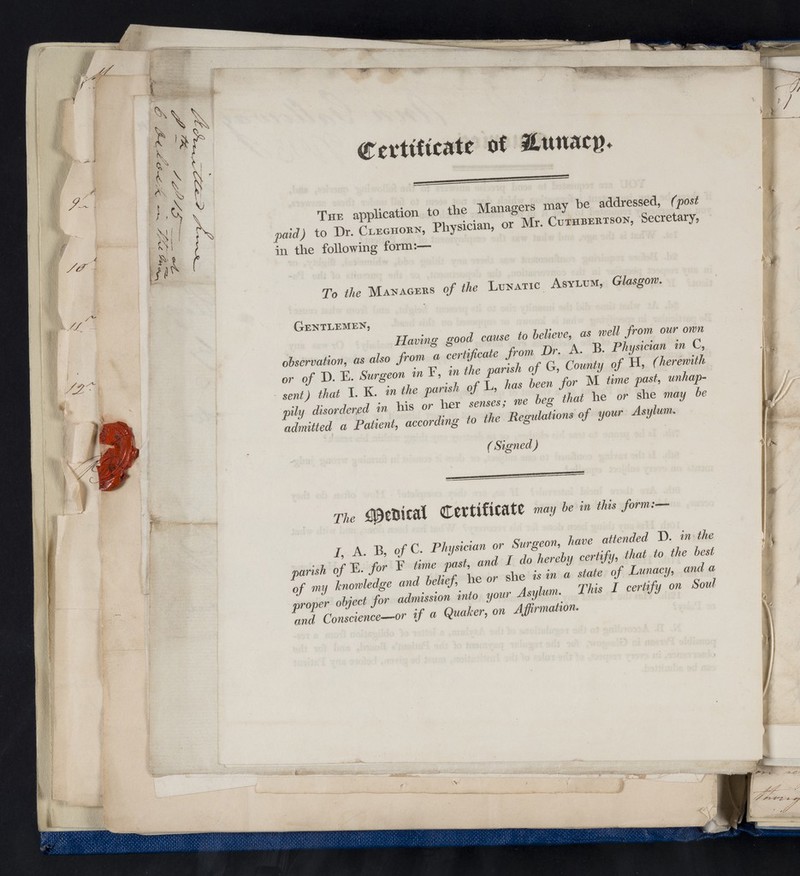 Certificate of Lunacy.
THE application to the Managers may be addressed, (post
paid) to Dr. CLEGHORN, Physician, or Mr. CUTHBERTSON, Secretary,
in the following form:—
To the MANAGERS of the LUNATIC ASYLUM, Glasgow.
GENTLEMEN,
Having good cause to believe, as well from our own
observation, as also from a certificate from Dr. A. B. Physician in C,
or of D. E. Surgeon in F, in the parish of G, County of H, (herewith
sent) that I. K. in the parish of L, has been for M time past, unhap-
pily disordered in his or her senses; we beg that he or she may be
admitted a Patient, according to the Regulations of your Asylum.
(Signed)
The Medical Certificate may be in this form:—
I, A. B, of C. Physician or Surgeon, have attended D. in the
parish of E. for F time past, and I do hereby certify, that to the best
of my knowledge and belief, he or she is in a state of Lunacy, and a
proper object for admission into your Asylum. This I certify on Soul
and Conscience—or if a Quaker, on Affirmation.
Admitted June
1815 at
6 oClock in the
9
10
11
12